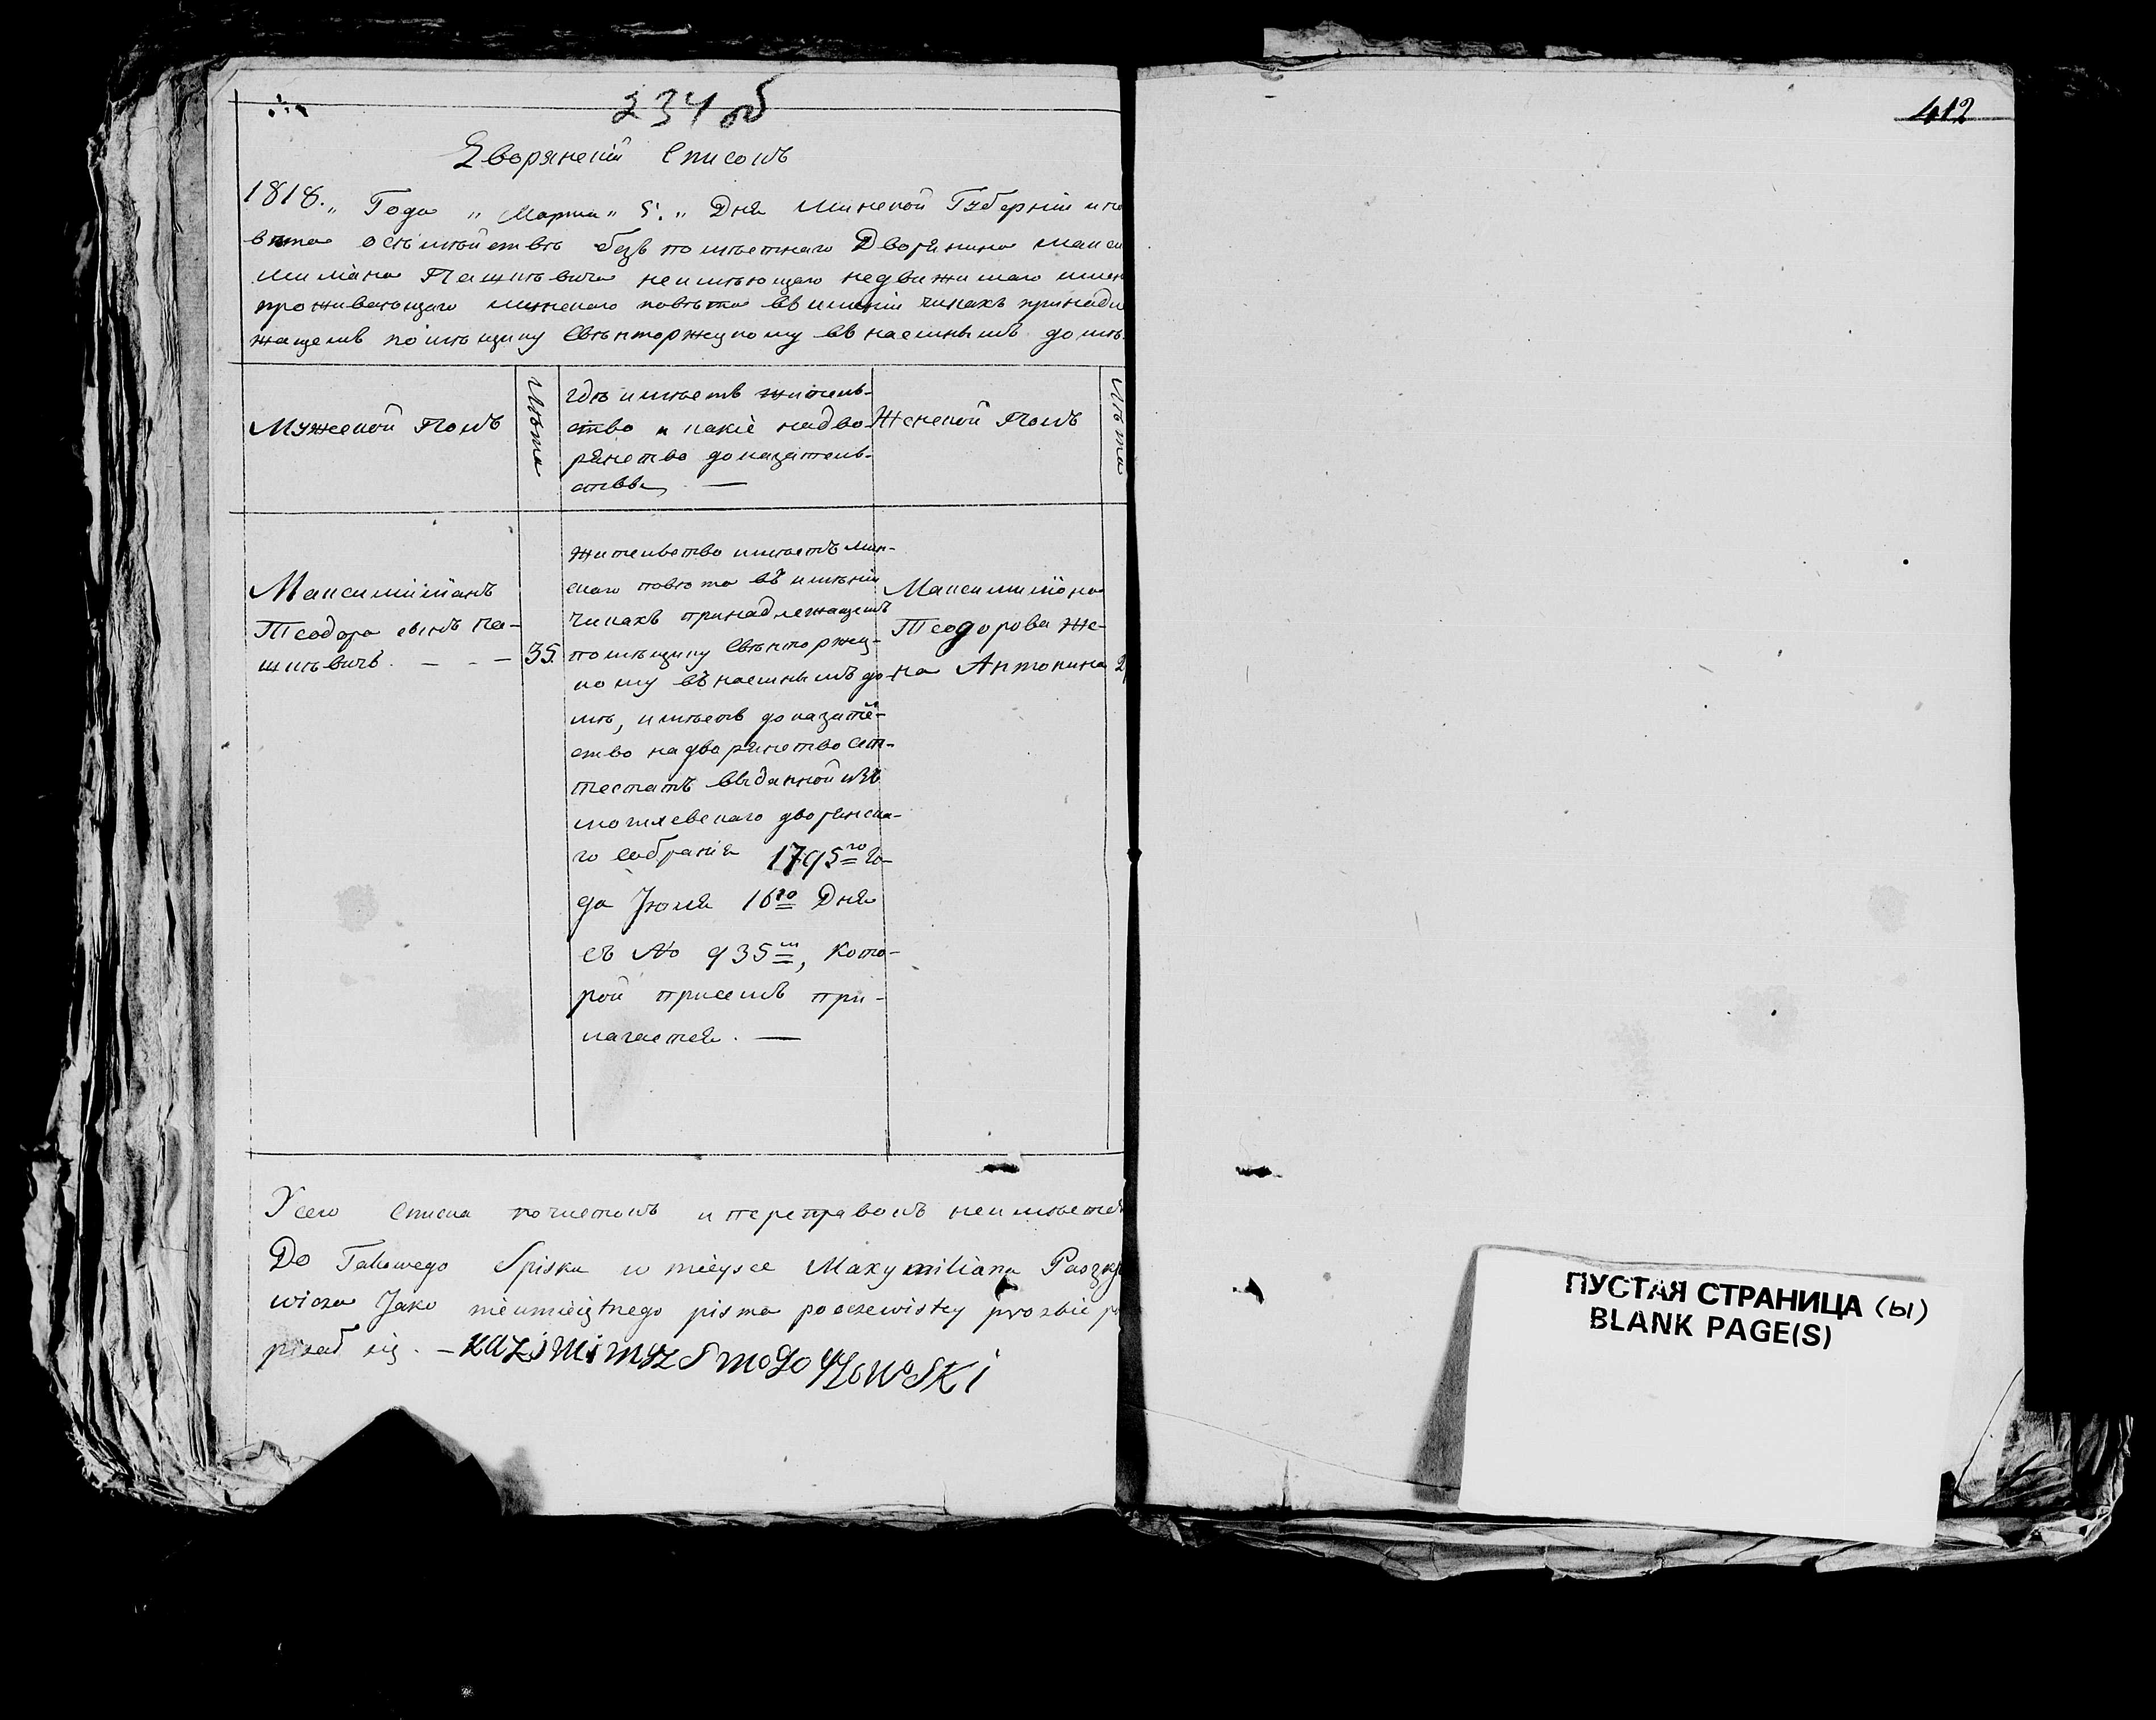 234 об
Дворянскій Списокъ
1818. „ Года „ Марта „ 5. „ Дня Минской Губерніи и по
вѣта о семействѣ безъ помѣстнаго Дворянина Макси
миліана Пашкѣвича неимѣющаго недвижимаго имен
проживающаго минскаго повѣта въ имѣніи чикахъ принадл
жащемъ помѣщику Свѣнторжецкому въ наемнымъ домѣ
Мужеской Полъ
Лѣта
гдѣ имѣетъ житель-
ство и какіе на дво
рянство доказатель-
ства —
Женской Полъ
Лѣта
Максиміліанъ
Теодора сынъ Па-
шкѣвичъ. — - —
35.
жительство имѣетъ мин-
скаго повѣта въ имѣніи
чикахъ принадлежащемъ
помѣщику Свѣнторжец-
кому въ наемнымъ до-
мѣ, имѣетъ доказате-
ство на дворянство ат-
тестатъ выданной изъ
могилевскаго дворянска-
го собранія 1795го го-
да Іюля 16го Дня
съ No 935м, кото-
рой присемъ при-
лагается. —
Максимиліана
Теодорова же-
на Антонина
2
У сего списка почистокъ и переправокъ неимѣется
Do Takowego Spisku w mieysce Maxymiliana Paszkie
wicza Jako nieumieiętnego pisma po oczewistey prozbie po
pisał się. — Kazimimyz Smogoyzowski
412
ПУСТАЯ СТРАНИЦА (Ы)
BLANK PAGE(S)